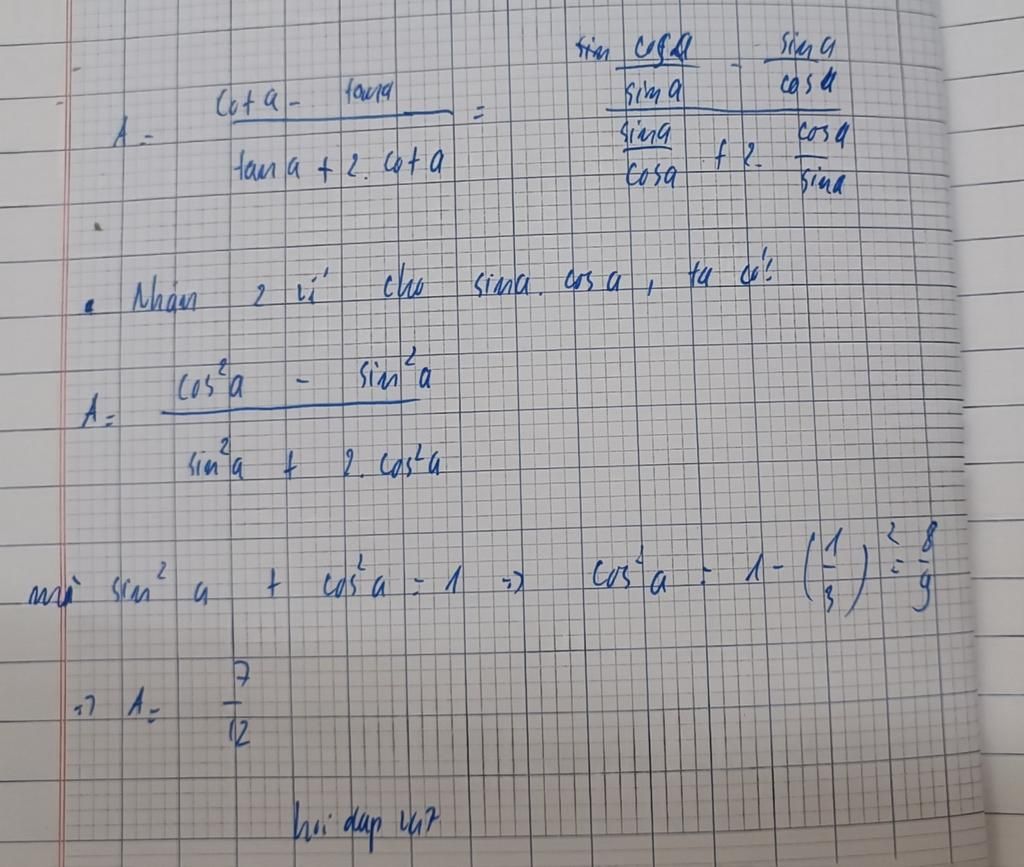 A = (cot a - tan a) / (tan a + 2. cot a) = (cos a / sin a - sin a / cos a) / (sin a / cos a + 2. cos a / sin a)
• Nhân 2 vế cho sin a. cos a, ta có:
A = (cos²a - sin²a) / (sin²a + 2. cos²a)
mà sin² a + cos² a = 1 => cos² a = 1 - (1/3)² = 8/9
=> A = 7/12
hoi dap 247